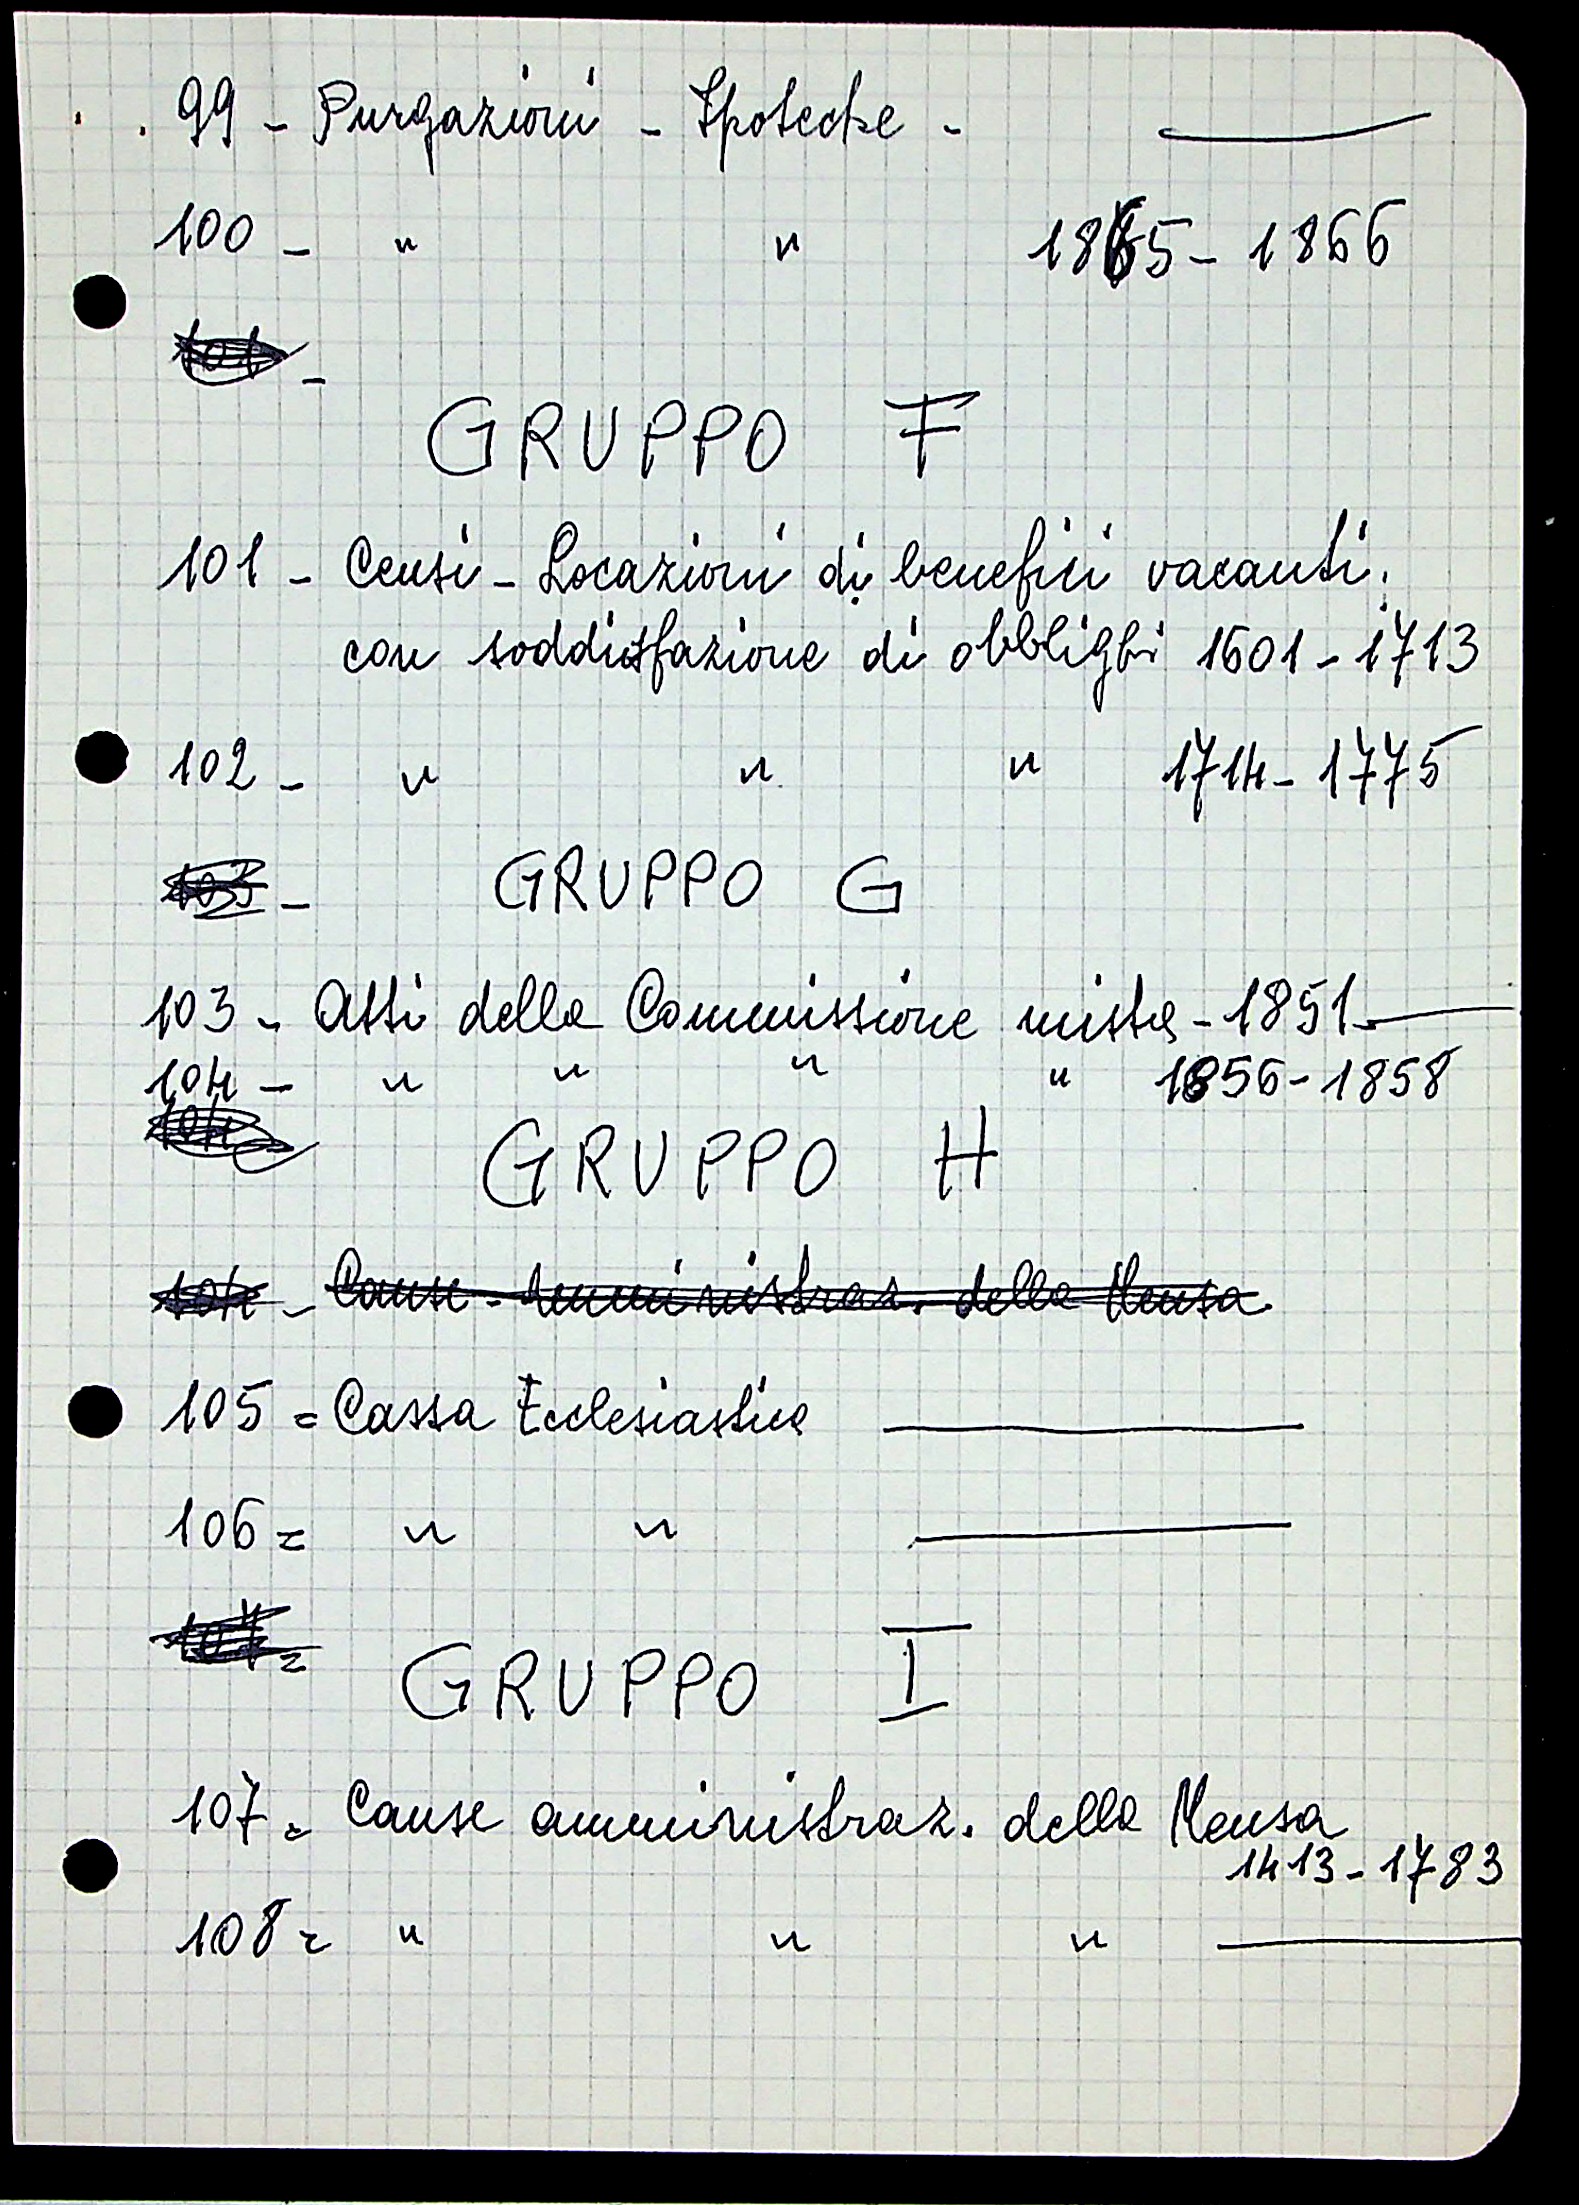 99 - Purgazioni - Ipoteche -
100 - " " 1865 - 1866
101 -
GRUPPO F
101 - Censi - Locazioni di benefici vacanti
con soddisfazione di obblighi 1601 - 1713
102 - " " " 1714 - 1775
103 - GRUPPO G
103 - Atti della Commissione mista - 1851 -
104 - " " " " 1856 - 1858
104
GRUPPO H
104 - Cause - Amministraz. della Mensa
105 = Cassa Ecclesiastica
106 = " "
107 =
GRUPPO I
107 = Cause amministraz. della Mensa
1413 - 1783
108 = " " "